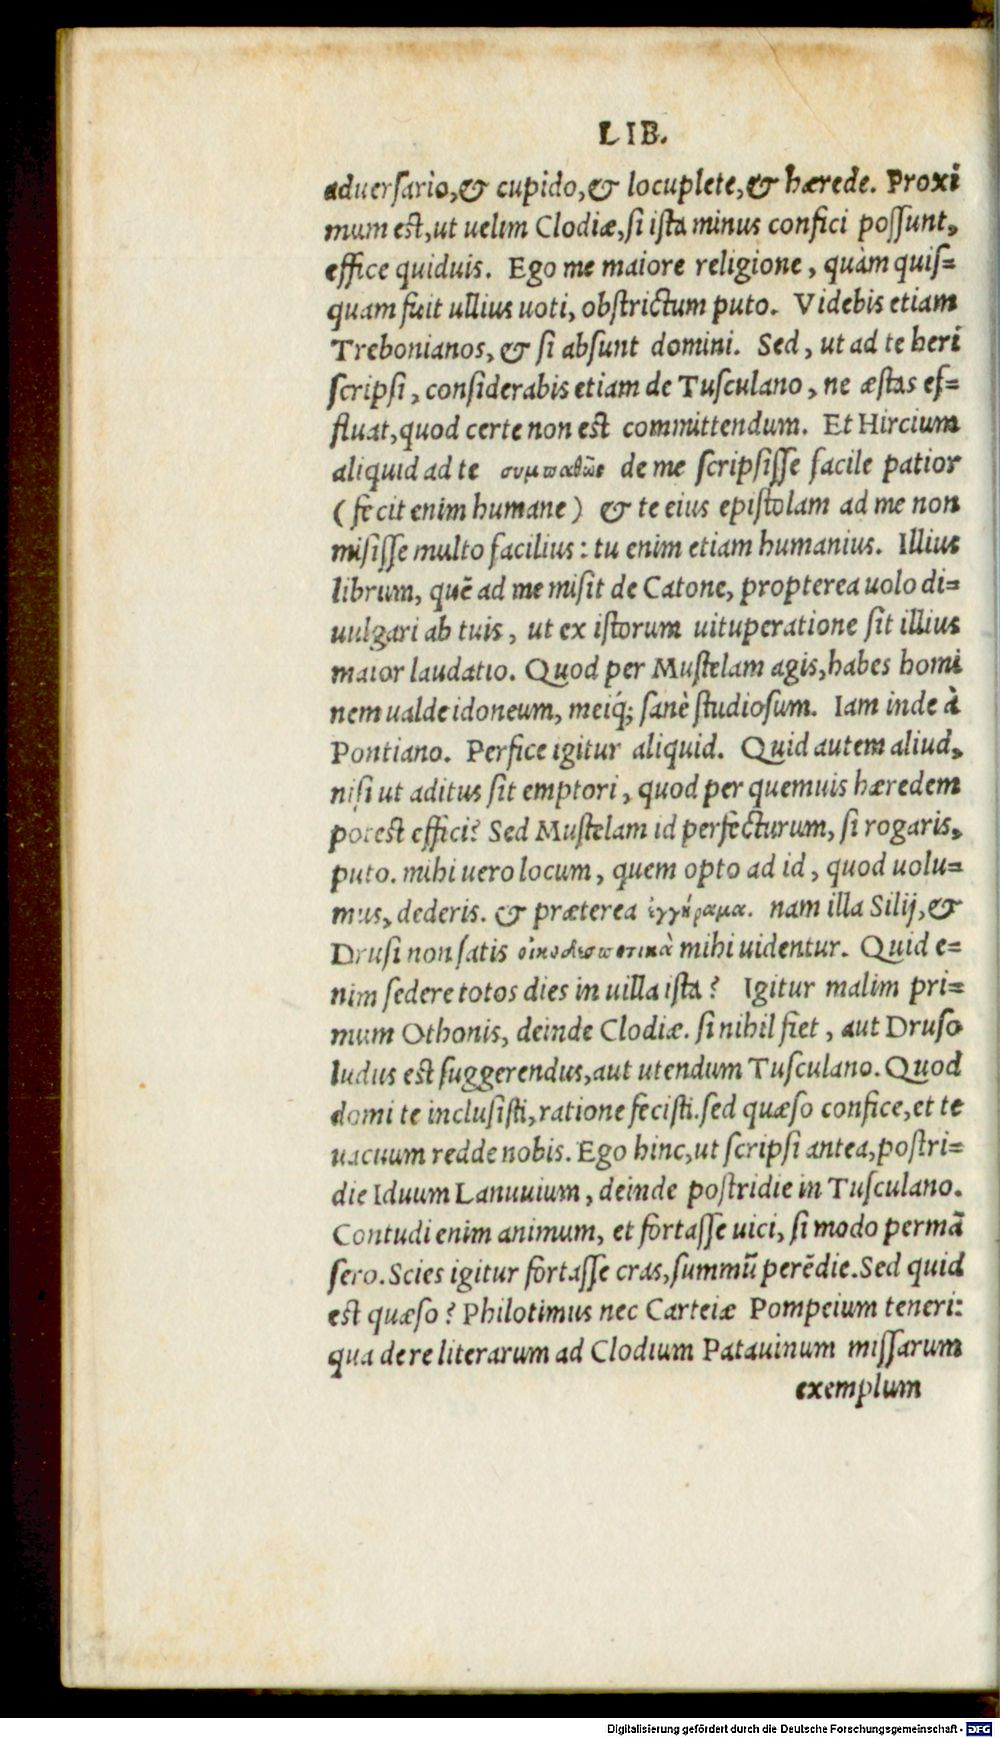 LIB.
aduersario, & cupido, & locuplete, & hærede. Proxi
mum est, ut uelim Clodiæ, si ista minus confici possunt,
effice quiduis. Ego me maiore religione, quàm quis=
quam fuit ullius uoti, obstrictum puto. Videbis etiam
Trebonianos, & si absunt domini. Sed, ut ad te heri
scripsi, considerabis etiam de Tusculano, ne æstas ef=
fluat, quod certe non est committendum. Et Hircium
aliquid ad te συμπαθῶς de me scripsisse facile patior
(fecit enim humane) & te eius epistolam ad me non
misisse multo facilius: tu enim etiam humanius. Illius
librum, quē ad me misit de Catone, propterea uolo di=
uulgari ab tuis, ut ex istorum uituperatione sit illius
maior laudatio. Quod per Mustelam agis, habes homi
nem ualde idoneum, meiq́; sanè studiosum. Iam inde à
Pontiano. Perfice igitur aliquid. Quid autem aliud,
nisi ut aditus sit emptori, quod per quemuis hæredem
potest effici? Sed Mustelam id perfecturum, si rogaris,
puto. mihi uero locum, quem opto ad id, quod uolu=
mus, dederis. & præterea ἐγγήραμα. nam illa Silij, &
Drusi non satis οἰκοδεσποτικὰ mihi uidentur. Quid e=
nim sedere totos dies in uilla ista? Igitur malim pri=
mum Othonis, deinde Clodiæ. si nihil fiet, aut Druso
ludus est suggerendus, aut utendum Tusculano. Quod
domi te inclusisti, ratione fecisti. sed quæso confice, et te
uacuum redde nobis. Ego hinc, ut scripsi antea, postri=
die Iduum Lanuuium, deinde postridie in Tusculano.
Contudi enim animum, et fortasse uici, si modo permā
sero. Scies igitur fortasse cras, summū perēdie. Sed quid
est quæso? Philotimus nec Carteiæ Pompeium teneri:
qua de re literarum ad Clodium Patauinum missarum
exemplum
Digitalisierung gefördert durch die Deutsche Forschungsgemeinschaft - DFG